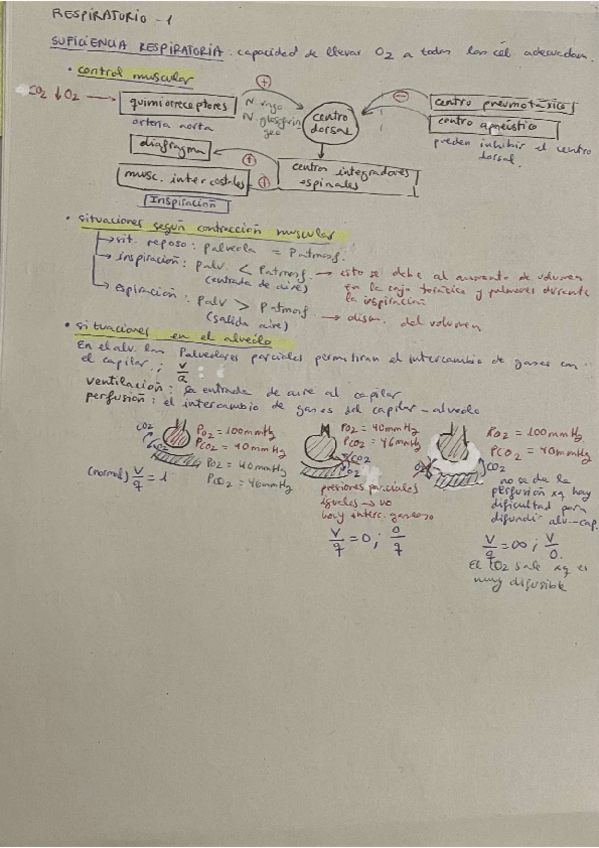 RESPIRATORIO - 1
SUFICIENCIA RESPIRATORIA. capacidad de llevar O2 a todas las cél adecuadam.
• control muscular
CO2 ↓O2 → quimiorreceptores
aorta
+
N. vago
N. glosofaríngeo
centro dorsal
−
centro pneumotáxico
centro apnéustico
pueden inhibir el centro
dorsal.
diafragma
musc. intercostales
+
+
centros integradores
espinales
Inspiración
• situaciones según contracción muscular
sit. reposo: Palveolo = Patmosf.
inspiración: Palv. < Patmosf. → esto se debe al aumento de volumen
(entrada de aire) en la caja torácica y pulmones durante
la inspiración
espiración: Palv > Patmosf
(salida aire) → dism. del volumen
• situaciones en el alveolo
En el alv. las Palveolares parciales permitiran el intercambio de gases con
el capilar.; V/Q
ventilación: la entrada de aire al capilar
perfusión: el intercambio de gases del capilar-alveolo
CO2
O2
PO2 = 100mmHg
PCO2 = 40mmHg
PO2 = 40mmHg
PCO2 = 46mmHg
(normal) V/q = 1
PO2 = 40mmHg
PCO2 = 46mmHg
CO2
O2
presiones parciales
iguales → no
hay interc. gaseoso
V/q = 0; 0/q
PO2 = 100mmHg
PCO2 = 40mmHg
O2
CO2
no se da la
perfusión xq hay
dificultad para
difundir alv-cap.
V/q = ∞; V/0.
El CO2 sale xq es
muy difusible